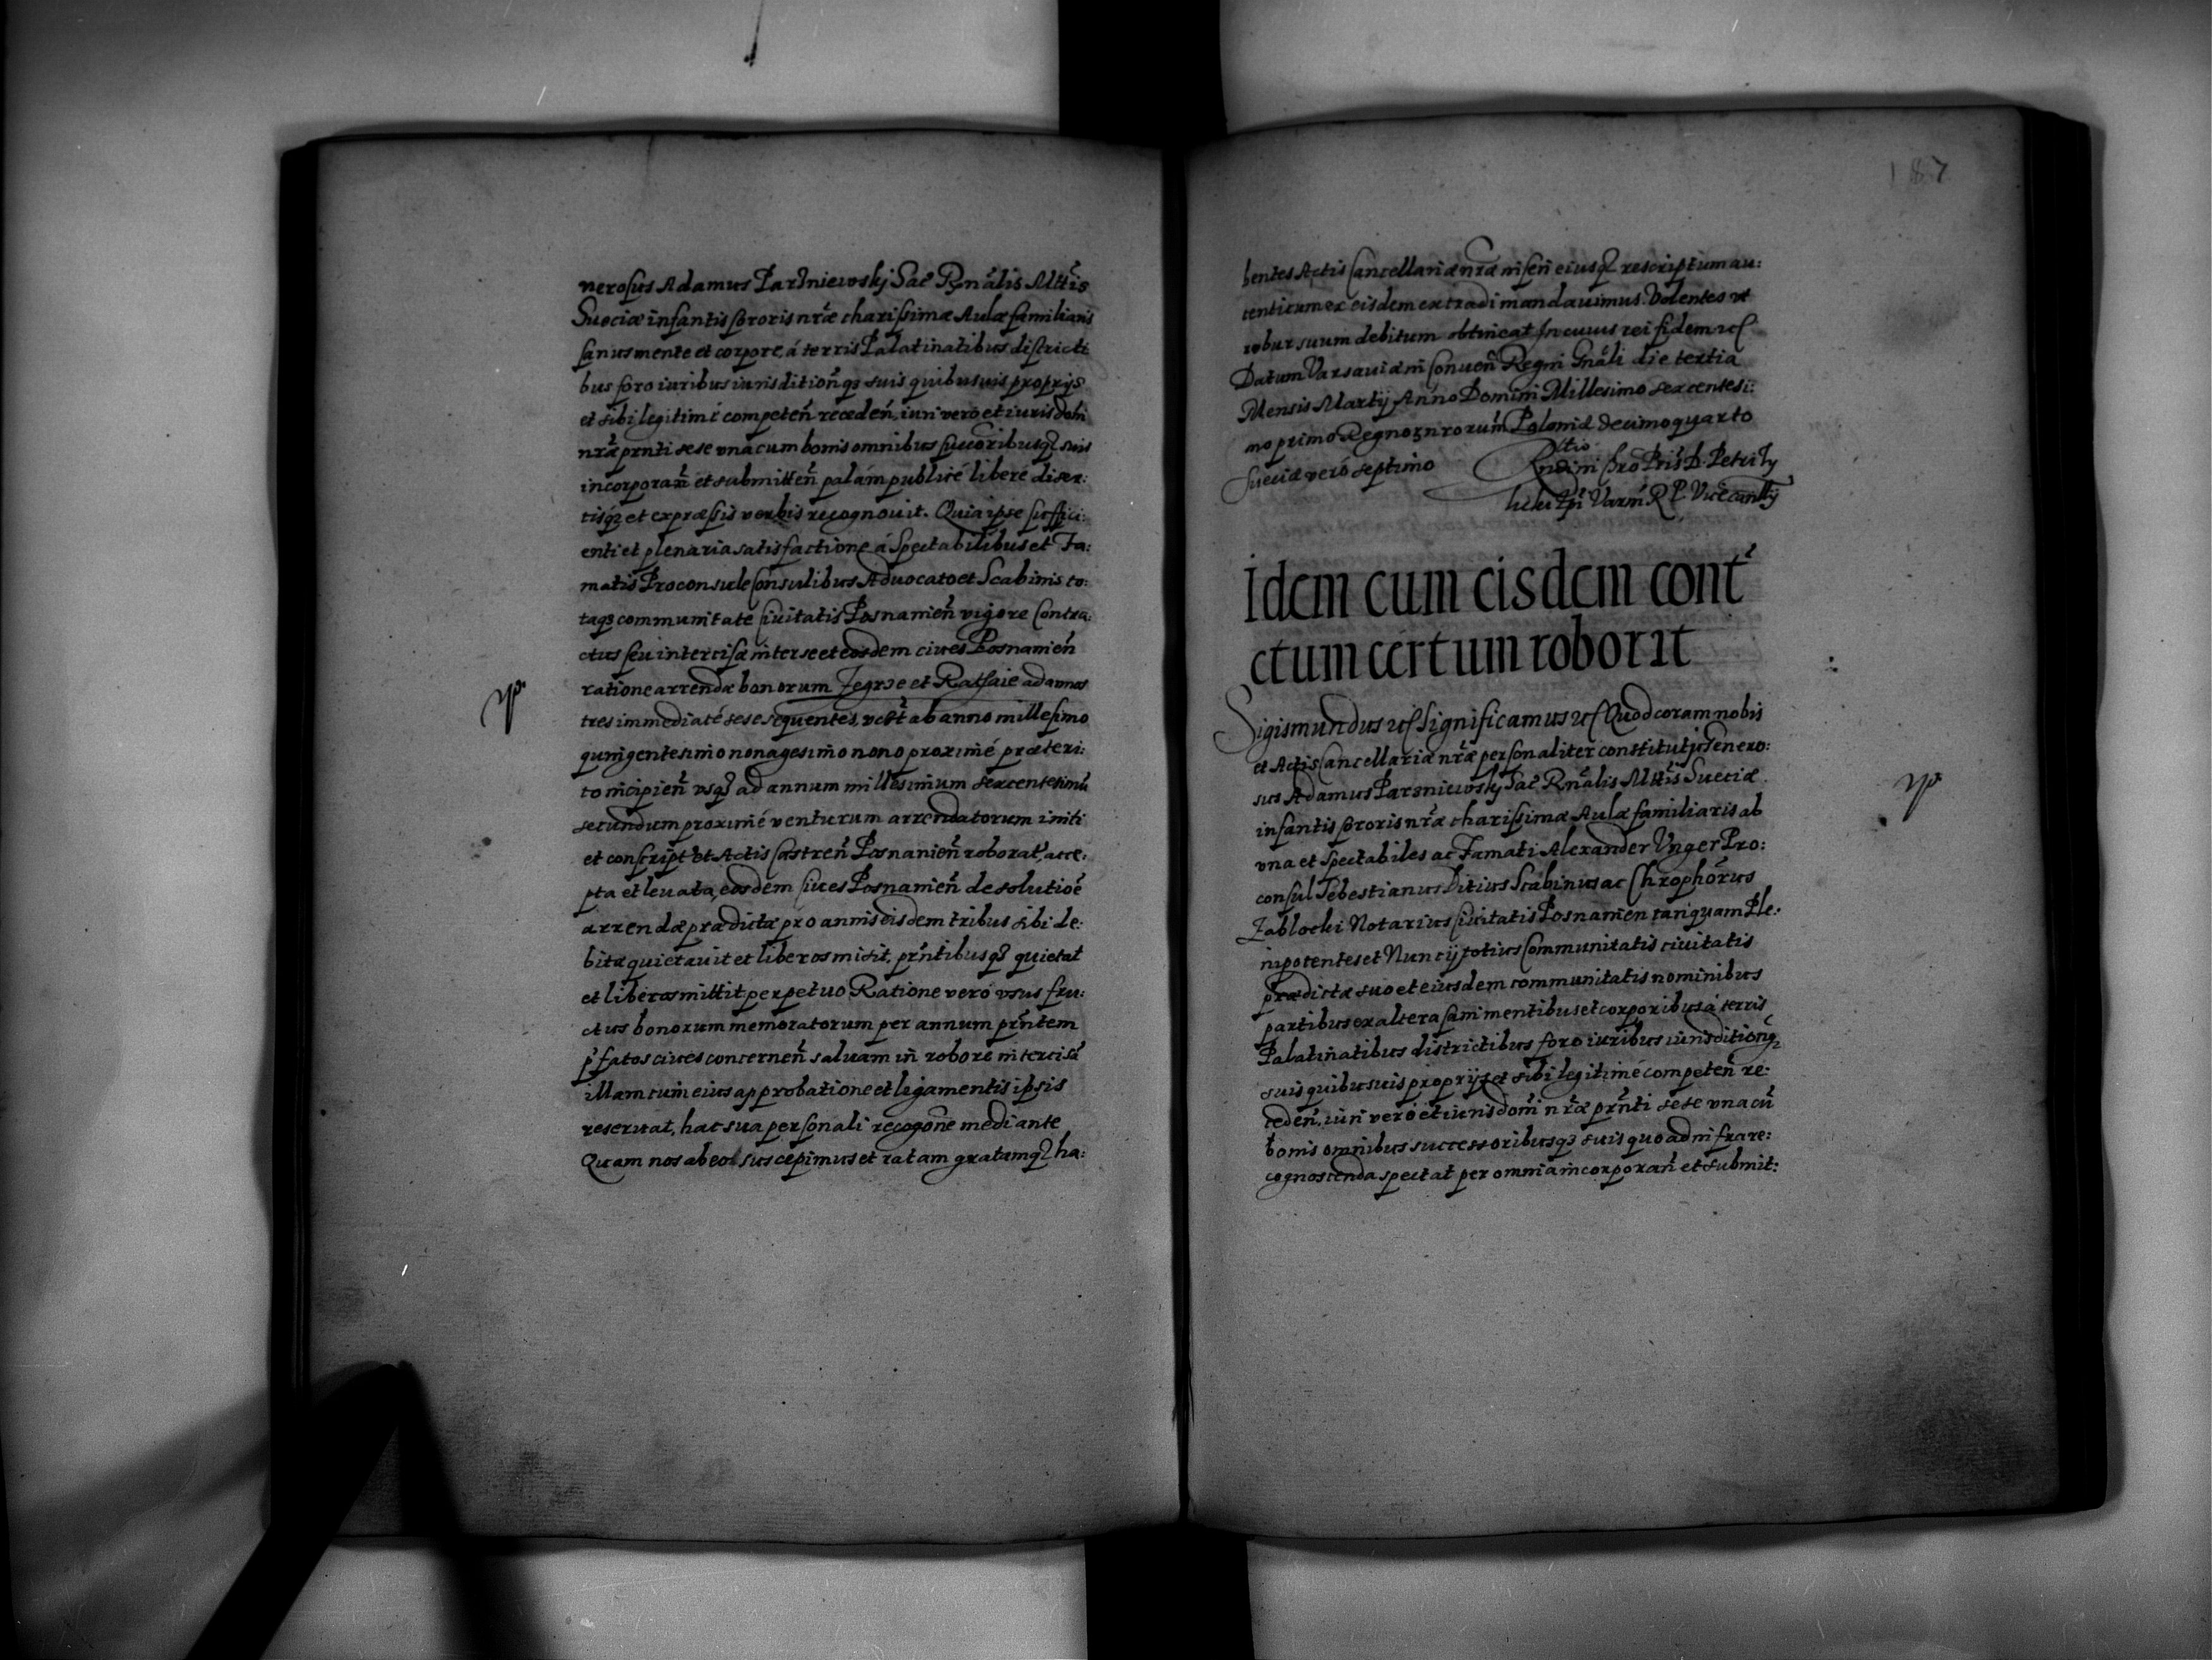 nerosus Adamus Parzniewskj Sac̃ Rgnãlis Mttis̃
Sueciæ infantis sororis nr̃æ charissimæ Aulæ familiaris
sanus mente et corpore, á terris Palatinatibus districti
bus foro iuribus iurisditioñqȝ suis quibusuis proprijs
et sibi legitimé competeñ recedeñ, iuri vero et iurisdoñi
nr̃æ prñti sese vna cum bonis omnibus succoribusqȝ suis
incorporañ et submitteñ palám publicé liberé diser:
tisqȝ et expræssis verbis recognouit. Quia ipse suffici:
enti et plenaria satisfactione á Spectabilibus et Fa:
matis Proconsule Consulibus Aduocato et Scabinis to:
taqȝ communitate Ciuitatis Posnanieñ vigore Contra:
ctus seu intercisæ inter se et eosdem ciues Posnanieñ
ratione arrendæ bonorum Zegrze et Rattaie ad annos
tres immediaté sese sequentes, vct̃ ab anno millesimo
quingentesimo nonagesimo nono proximé præteri:
to incipieñ vsqȝ ad annum millesimum sexcentesimũ
secundum proximé venturum arrendatorum initi
et conscript̃ et Actis Castreñ Posnanieñ roborat̃, acce:
pta et leuata, eosdem Ciues Posnanieñ de solutioẽ
arrendæ prædictæ pro annis eisdem tribus sibi de:
bitæ quietauit et liberos misit, prñtibusqȝ quietat
et liberos mittit perpetuo Ratione veró vsus fru:
ctus bonorum memoratorum per annum prñtem
p̃fatos ciues concerneñ saluam in robore intercisã
illam cum eius approbatione et ligamentis ipsis
reseruat, hac sua personali recogoñe mediante
Quam nos ab eo suscepimus et ratam gratamqȝ ha:
187
bentes Actis Cancellariæ nr̃æ inseri eiusqȝ rescriptum au:
tenticum ex eisdem extradi mandauimus. Volentes vt
robur suum debitum obtineat In cuius rei fidem etc
Datum Varsauiæ in Conueñ Regni Gnãli die tertia
Mensis Martij Anno Domini Millesimo sexcentesi:
mo primo Regnoȝ nrorum Poloniæ decimoquarto
Sueciæ veró septimo
Idem cum eisdem cont̃
ctum certum roborat
Sigismundus etc Significamus etc Quod coram nobis
et Actis Cancellariæ nr̃æ personaliter constituti Genero:
sus Adamus Parzniewskj Sac̃ Rnãlis Mttis̃ Sueciæ
infantis sororis nr̃æ charissimæ Aulæ familiaris ab
vna et Spectabiles ac Famati Alexander Vnger Pro:
consul Sebestianus Ditius Scabinus ac Chrophõrus
Zablocki Notarius Ciuitatis Posnanien tanquam Ple:
nipotentes et Nuncij totius Communitatis ciuitatis
prædictæ suo et eiusdem communitatis nominibus
partibus ex altera sani mentibus et corporibus á terris
Palatinatibus districtibus foro iuribus iurisditionqȝ
suis quibusuis proprijs et sibi legitimé competeñ re:
cedeñ, iuri veró et iurisdoni nr̃æ prñti sese vna cũ
bonis omnibus successoribusqȝ suis quo ad infra re:
cognoscenda spectat per omnia incorporañ et submit: